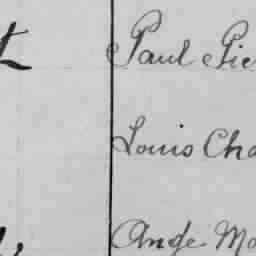 t Paul Pie
Louis Cha
Ange Mo